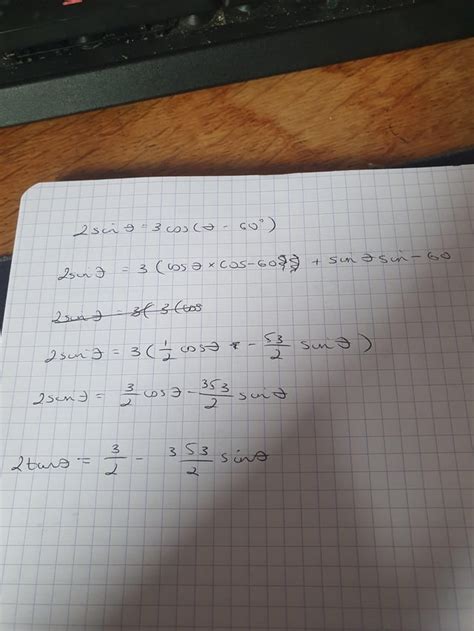 2sinθ = 3cos(θ - 60°)
2sinθ = 3(cosθ × cos-60 + sinθ sin - 60
2sinθ = 3( 3(cos
2sinθ = 3(1/2 cosθ - √3/2 sinθ)
2sinθ = 3/2 cosθ - 3√3/2 sinθ
2tanθ = 3/2 - 3√3/2 sinθ